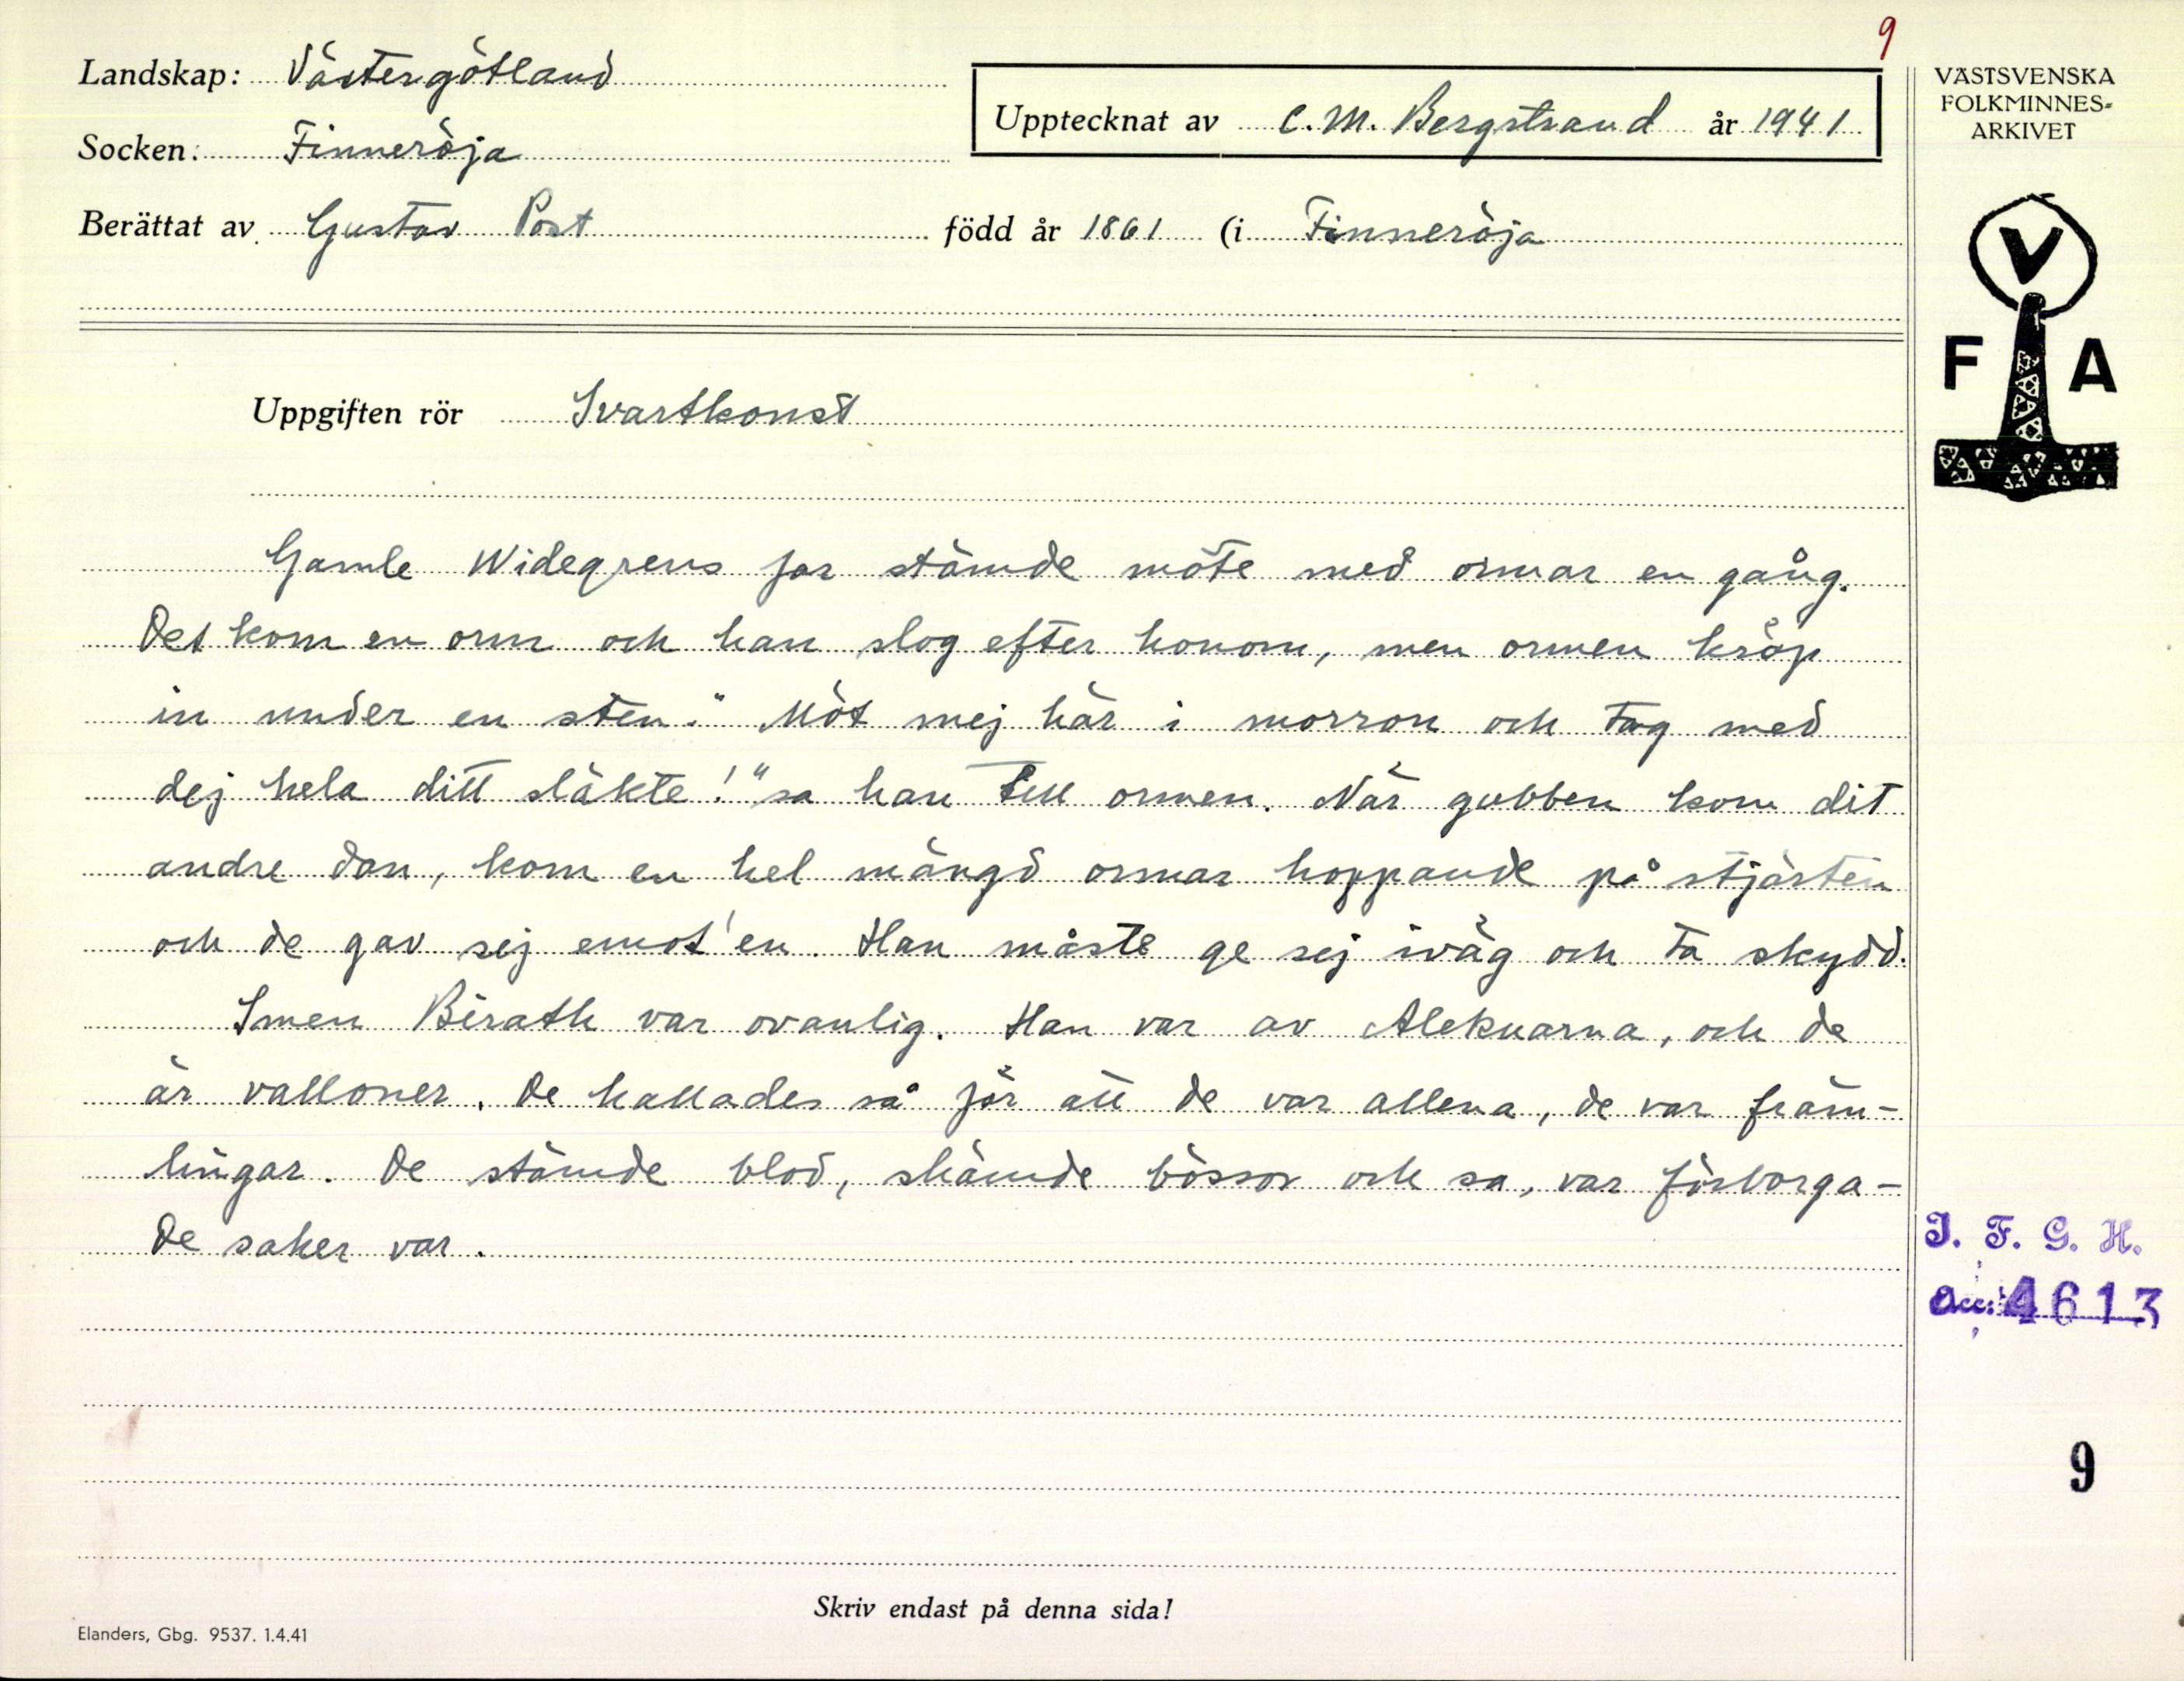 9
Landskap: Västergötland
Upptecknat av C. M. Bergstrand år 1941
Socken: Finneröja
Berättat av Gustav Post född år 1861 (i Finneröja
VÄSTSVENSKA
FOLKMINNES-
ARKIVET
V
F A
Uppgiften rör Svartkonst
Gamle Widegrens far stämde möte med ormar en gång.
Det kom en orm och han slog efter honom, men ormen kröp
in under en sten. "Möt mej här i morron och tag med
dej hela ditt släkte!" sa han till ormen. När gubben kom dit
andre dan, kom en hel mängd ormar hoppande på stjärten
och de gav sej emot'en. Han måste ge sej iväg och ta skydd.
Smen Bérath var ovanlig. Han var av Aleknarna, och de
är valloner. De kallades så för att de var allena, de var främ-
lingar. De stämde blod, skämde bössor och sa, var förborga-
de saker var.
I. F. G. H.
Acc: 4613
9
Skriv endast på denna sida!
Elanders, Gbg. 9537. 1.4.41